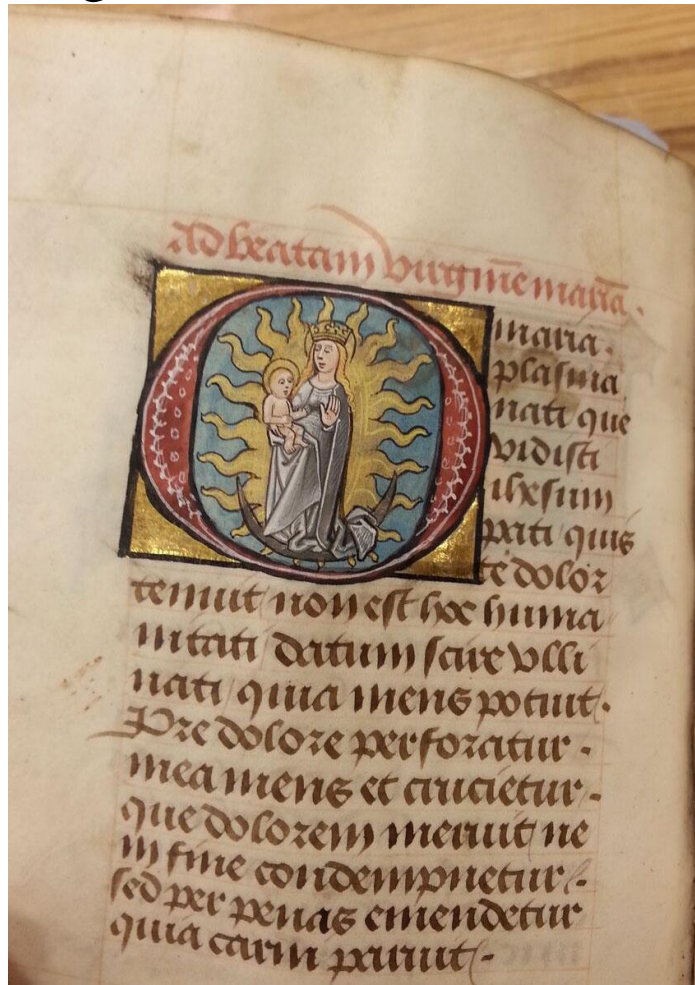 Ad beatam virginē mariā.
O maria.
plasma
nati que
vidisti
ihesum
pati quis
te dolor
tenuit non est hoc huma
nitati datum scire vlli
nati quia mens potuit.
Pre dolore perforatur.
mea mens et crucietur.
que dolorem meruit ne
in fine condempnetur.
sed per penas emendetur
quia carni paruit.